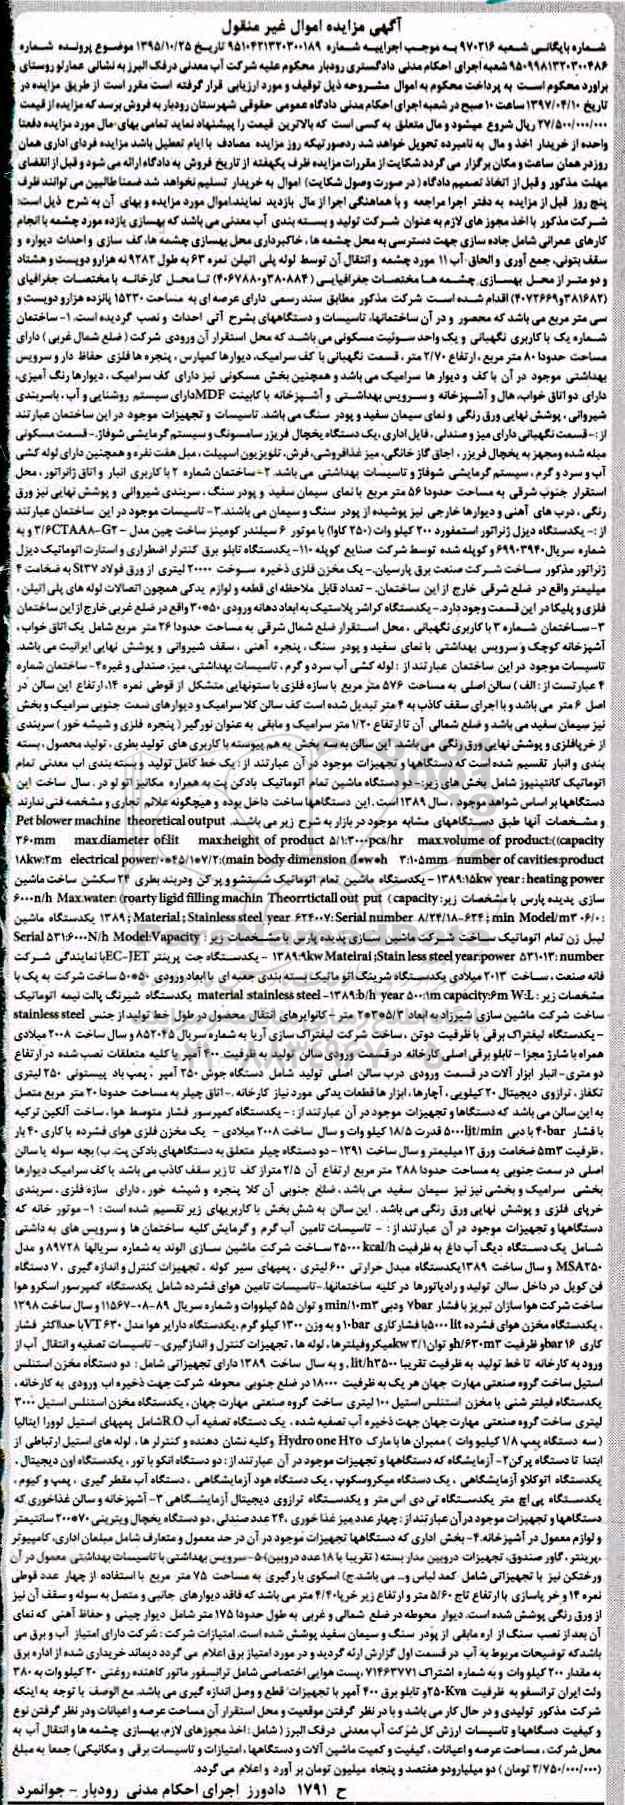 آگهی مزایده اموال غیر منقول
شماره بایگانی شعبه ۹۷۰۲۱۶ به موجب اجراییه شماره ۹۵۱۰۴۲۱۳۲۰۳۰۰۱۸۹ تاریخ ۱۳۹۵/۱۰/۲۵ موضوع پرونده شماره
۹۵۰۹۹۸۱۳۲۰۳۰۰۴۸۶ شعبه اجرای احکام مدنی دادگستری رودبار محکوم علیه شرکت آب معدنی درفک البرز به نشانی عمارلو روستای
براورد محکوم است به پرداخت محکوم به اموال مشروحه ذیل توقیف و مورد ارزیابی قرار گرفته است مقرر است از طریق مزایده در
تاریخ ۱۳۹۷/۰۴/۱۰ ساعت ۱۰ صبح در شعبه اجرای احکام مدنی دادگاه عمومی حقوقی شهرستان رودبار به فروش برسد که مزایده از قیمت
۲۷/۵۰۰/۰۰۰/۰۰۰ ریال شروع میشود و مال متعلق به کسی است که بالاترین قیمت را پیشنهاد نماید تمامی بهای مال مورد مزایده دفعتا
واحده از خریدار اخذ و مال به نامبرده تحویل خواهد شد درصورتیکه روز مزایده مصادف با ایام تعطیل باشد مزایده فردای اداری همان
روز در همان ساعت و مکان برگزار می گردد شکایت از مقررات مزایده ظرف یکهفته از تاریخ فروش به دادگاه ارائه می شود و قبل از انقضای
مهلت مذکور و قبل از اتخاذ تصمیم دادگاه ( در صورت وصول شکایت) اموال به خریدار تسلیم نخواهد شد ضمنا طالبین می توانند ظرف
پنج روز قبل از مزایده به دفتر اجرا مراجعه و با هماهنگی اجرا از مال بازدید نمایند. اموال مورد مزایده و بهای آن به شرح ذیل است:
شرکت مذکور با اخذ مجوز های لازم به عنوان شرکت تولید و بسته بندی آب معدنی می باشد که بهسازی یازده مورد چشمه با انجام
کارهای عمرانی شامل جاده سازی جهت دسترسی به محل چشمه ها ، خاکبرداری محل بهسازی چشمه ها، کف سازی و احداث دیواره و
سقف بتونی، جمع آوری و الحاق آب ۱۱ مورد چشمه و انتقال آن توسط لوله پلی اتیلن نمره ۶۳ به طول ۹۲۸۲ نه هزار و دویست و هشتاد
و دو متر از محل بهسازی چشمه ها مختصات جغرافیایی (۳۸۰۸۸۴و۴۰۶۷۸۸۰) تا محل کارخانه با مختصات جغرافیای
(۳۸۱۶۸۲و۴۰۷۲۶۶۹) اقدام شده است شرکت مذکور مطابق سند رسمی دارای عرصه ای به مساحت ۱۵۲۳۰ پانزده هزار و دویست و
سی متر مربع می باشد که محصور و در آن ساختمانها، تاسیسات و دستگاههای بشرح آتی احداث و نصب گردیده است. ۱- ساختمان
شماره یک با کاربری نگهبانی و یک واحد سوئیت مسکونی می باشد که محل استقرار آن ورودی شرکت ( ضلع شمال غربی ) دارای
مساحت حدودا ۸۰ متر مربع ، ارتفاع ۲/۷۰ متر ، قسمت نگهبانی با کف سرامیک، دیوارها کمپارس ، پنجره ها فلزی حفاظ دار و سرویس
بهداشتی موجود در آن با کف و دیوار ها سرامیک می باشد و همچنین بخش مسکونی نیز دارای کف سرامیک ، دیوارها رنگ آمیزی،
دارای دو اتاق خواب، هال و آشپزخانه و سرویس بهداشتی و آشپزخانه با کابینت MDFدارای سیستم روشنایی و آب ، باسربندی
شیروانی ، پوشش نهایی ورق رنگی و نمای سیمان سفید و پودر سنگ می باشد. تاسیسات و تجهیزات موجود در این ساختمان عبارتند
از :- قسمت نگهبانی دارای میز و صندلی ، فایل اداری ، یک دستگاه یخچال فریزر سامسونگ و سیستم گرمایشی شوفاژ.- قسمت مسکونی
مبله شده و مجهز به یخچال فریزر ، اجاق گاز خانگی، میز غذافروشی، فرش، تلویزیون اسپیلت ، مبل هفت نفره و همچنین دارای لوله کشی
آب و سرد و گرم ، سیستم گرمایشی شوفاژ و تاسیسات بهداشتی می باشد. ۲- ساختمان شماره ۲ با کاربری انبار و اتاق ژانراتور ، محل
استقرار جنوب شرقی به مساحت حدودا ۵۶ متر مربع با نمای سیمان سفید و پودر سنگ ، سربندی شیروانی و پوشش نهایی نیز ورق
رنگی ، درب های آهنی و دیوارها خارجی نیز پوشیده از پودر سنگ و سیمان می باشند. ۳- تاسیسات موجود در این ساختمان عبارتند
از :- یکدستگاه دیزل ژنراتور استمفورد ۲۰۰ کیلو وات (۲۵۰ کاوا) با موتور ۶ سیلندر کومینز ساخت چین مدل - ۶CTAA۸-G۲/۳ و به
شماره سریال ۶۹۹۰۳۹۴۰ و کوپله شده توسط شرکت صنایع کوپله ۱۱۰- یکدستگاه تابلو برق کنترلر اضطراری و استارت اتوماتیک دیزل
ژنراتور مذکور ساخت شرکت صنعت برق پارسیان.- یک مخزن فلزی ذخیره سوخت ۲۰۰۰۰ لیتری از ورق فولاد St۳۷ به ضخامت ۴
میلیمتر واقع در ضلع شرقی خارج از این ساختمان. - تعداد قابل ملاحظه ای قطعه و لوازم یدکی همچون اتصالات لوله های پلی اتیلن ،
فلزی و پلیکا در این قسمت وجود دارد.- یکدستگاه کراشر پلاستیک به ابعاد دهانه ورودی ۵۰*۳۰ واقع در ضلع غربی خارج از این ساختمان
۳- ساختمان شماره ۳ با کاربری نگهبانی ، محل استقرار ضلع شمال شرقی به مساحت حدودا ۲۶ متر مربع شامل یک اتاق خواب ،
آشپزخانه کوچک و سرویس بهداشتی با نمای سفید و پودر سنگ ، پنجره آهنی ، سقف شیروانی و پوشش نهایی ایرانیت می باشد.
تاسیسات موجود در این ساختمان عبارتند از : لوله کشی آب سرد و گرم ، تاسیسات بهداشتی، میز، صندلی و غیره ۴- ساختمان شماره
۴ عبارتست از : الف ) سالن اصلی به مساحت ۵۷۶ متر مربع با سازه فلزی با ستونهایی متشکل از قوطی نمره ۱۴، ارتفاع این سالن در
اصل ۶ متر می باشد و با اجرای سقف کاذب به ۴ متر تبدیل شده است کف سالن کلا سرامیک و دیوارهای سمت جنوبی سرامیک و بخش
نیز سیمان سفید می باشد و ضلع شمالی آن تا ارتفاع ۱/۲۰ متر سرامیک و مابقی به عنوان نورگیر ( پنجره فلزی و شیشه خور ) سربندی
از خرپا فلزی و پوشش نهایی ورق رنگی می باشد این سالن به سه بخش به هم پیوسته با کاربری های تولید بطری ، تولید محصول، بسته
بندی و انبار تقسیم شده است که دستگاهها و تجهیزات موجود در آن عبارتند از : یک خط کامل تولید و بسته بندی آب معدنی تمام
اتوماتیک کانتینیوز شامل بخش های زیر:- دو دستگاه ماشین تمام اتوماتیک بادکن پت به همراه مکانیز اتو لودر . سال ساخت این
دستگاهها بر اساس شواهد موجود ، سال ۱۳۸۹ است . این دستگاهها ساخت داخل بوده و هیچگونه علائم تجاری و مشخصه فنی ندارند
و مشخصات آنها طبق دستگاههای مشابه موجود در بازار به شرح زیر می باشند. Pet blower machine theoretical output
۳۶۰mm max.diameter of:lit max:height of product ۵/۱:۳۰۰۰pcs/hr max.volume of product:((capacity
۱۸kw:۲m electrical power/۰*۴۵/۱*۷/۲:(main body dimension (l*w*h ۳:۱۰۵mm number of cavities:product
۱۳۸۹:۱۵kw year : heating power - یکدستگاه ماشین تمام اتوماتیک شستشو و پر کن و دربند بطری ۲۴ سکشن ساخت ماشین
سازی پدیده پارس با مشخصات زیر: ۶۰۰۰n/h Max.water: (roarty ligid filling machin Theorrtictall out put ( capacity
لیبل زن تمام اتوماتیک ساخت شرکت ماشین سازی پدیده پارس با مشخصات زیر : Serial ۵۳۱:۶۰۰۰N/h Model:Vapacity
۱۳۸۹:۹kw Mateiral ;Stain less steel year:power ۵۳۱۰۱۳: number - یکدستگاه جت پرینتر EC-JETبا نمایندگی شرکت
فانه صنعت ، ساخت ۲۰۱۳ میلادی یکدستگاه شرینگ اتو ماتیک بسته بندی جعبه ای با ابعاد ورودی ۵۰*۵۰ ساخت شرکت به پک با
مشخصات زیر : material stainless steel -۱۳۸۹:b/h year ۵۰۰:۱m capacity:۶m W:L یکدستگاه شیرنگ پالت نیمه اتوماتیک
ساخت شرکت ماشین سازی شیرزاد به ابعاد ۵/۳*۳*۲ متر - کانوایرهای انتقال محصول در طول خط تولید از جنس stainless steel
- یکدستگاه لیفتراک برقی با ظرفیت دوتن ، ساخت شرکت لیفتراک سازی آریا به شماره سریال ۸۵۲۰۴۵ و سال ساخت ۲۰۰۸ میلادی
همراه با شارژ مجزا - تابلو برقی اصلی کارخانه در قسمت ورودی سالن تولید به ظرفیت ۴۰۰ آمپر با کلیه متعلقات نصب شده در ارتفاع
دو متری- انبار ابزار آلات در قسمت ورودی درب سالن اصلی تولید شامل دستگاه جوش ۲۵۰ آمپر ، پمپ باد پیستونی ۲۵۰ لیتری
تکفاز ، ترازوی دیجیتال ۲۰ کیلویی ، آچارها، ابزار ها قطعات یدکی مورد نیاز کارخانه .- اتاق چیلر به مساحت حدودا ۲۰ متر مربع متصل
به این سالن می باشد که دستگاها و تجهیزات موجود در آن عبارتند از :- یکدستگاه کمپرسور فشار متوسط هوا ، ساخت آلکین ترکیه
با فشار ۴۰bar با دبی ۵۰۰۰ljt/min قدرت ۱۸/۵ کیلو وات و سال ساخت ۲۰۰۸ میلادی - یک مخزن فلزی هوای فشرده با کاری ۴۰ بار
، ظرفیت ۵m۳ ضخامت ورق ۱۲ میلیمتر و سال ساخت ۱۳۹۱ - دو دستگاه چیلر متعلق به دستگاههای بادکن پت. ب) بچه سوله یا سالن
اصلی در سمت جنوبی به مساحت حدودا ۲۸۸ متر مربع ارتفاع آن ۲/۵ متراز کف تا زیر سقف کاذب می باشد با کف سرامیک دیوارها
بخشی سرامیک و بخشی نیز سیمان سفید می باشد ، ضلع جنوبی آن کلا پنجره و شیشه خور ، دارای سازه فلزی ، سربندی
خرپای فلزی و پوشش نهایی ورق رنگی می باشد . این سالن به شش بخش با کاربریهای زیر تقسیم شده است : ۱- موتور خانه که
دستگاهها و تجهیزات موجود در آن عبارتند از : - تاسیسات تامین آب گرم و گرمایش کلیه ساختمان ها و سرویس های به داشتی
شامل یک دستگاه دیگ آب داغ به ظرفیت ۲۵۰۰۰kcal/h ساخت شرکت ماشین سازی الوند به شماره سریالها ۸۹۷۲۸ و مدل
MSA۲۵۰ و سال ساخت ۱۳۸۹یکدستگاه مبدل حرارتی ۶۰۰ لیتری ، پمپهای سیر کوله ، تجهیزات کنترل و اندازه گیری ، ۷ دستگاه
فن کویل در داخل سالن تولید و رادیاتورها در کلیه ساختمانها.- تاسیسات تامین هوای فشرده شامل یکدستگاه کمپرسور اسکرو هوا
ساخت شرکت هوا سازان تبریز با فشار ۷bar ودبی min/۱۰m۳ و توان ۵۵ کیلووات و شماره سریال ۸۹-۰۸-۱۱۵۶۷ و سال ساخت ۱۳۹۸
، یکدستگاه مخزن هوای فشرده ۵۰۰۰lit با فشار کاری ۱۰bar و به وزن ۱۳۰۰ کیلو گرم ، یکدستگاه درایر هوا مدل VT۶۳۰ با حداکثر فشار
کاری ۱۶bar و ظرفیت h/۶۳۰m۳و توان ۳/۱kw میکروفیلترها ، لوله ها ، تجهیزات کنترل و اندازگیری.- تاسیسات تصفیه و انتقال آب از
ورود به کارخانه تا خط تولید به ظرفیت تقریبا ۳۵۰۰lit/h و به سال ساخت ۱۳۸۹ دارای تجهیزاتی شامل : دو دستگاه مخزن استنلس
استیل ساخت گروه صنعتی مهارت جهان هر یک به ظرفیت ۱۸۰۰۰ در ضلع جنوبی محوطه شرکت جهت ذخیره اب ورودی به کارخانه ،
یکدستگاه فیلتر شنی با مخزن استنلس استیل ۱۰۰ لیتری ساخت گروه صنعتی مهارت جهان ، یکدستگاه مخزن استنلس استیل ۳۰۰۰
لیتری ساخت گروه صنعتی مهارت جهان جهت ذخیره آب تصفیه شده ، یک دستگاه تصفیه آب R.Oشامل پمپهای استیل لوورا ایتالیا
( سه دستگاه پمپ ۱/۸ کیلیو وات ) ممبران ها با مارک Hydro one H۷۰ وکلیه نشان دهنده و کنترلر ها ، لوله های استیل ارتباطی از
ابتدا تا دستگاه پرکن ۲- آزمایشگاه که دستگاهها و تجهیزات موجود در آن عبارتند از : دو دستگاه انکو با تور ، یکدستگاه اون دیجیتال ،
یکدستگاه اتوکلاو آزمایشگاهی ، یک دستگاه میکروسکوپ ، یک دستگاه هود آزمایشگاهی ، دستگاه آب مقطر گیری ، پمپ وکیوم ،
یکدستگاه پی اچ متر یکدستگاه تی دی اس متر و یکدستگاه ترازوی دیجیتال آزمایشگاهی ۳- آشپزخانه و سالن غذاخوری که
دستگاهها و تجهیزات موجود در آن عبارتند از : چهار عدد میز غذا خوری ، ۲۴ عدد صندلی ، دو دستگاه یخچال ویترینی ۷۰*۲۰۰ سانتیمتر
و لوازم معمول در آشپزخانه. ۴- بخش اداری که دستگاهها تجهیزات موجود در آن در حد معمول و متعارف شامل مبلمان اداری، کامپیوتر
،پرینتر ، گاور صندوق، تجهیزات دروبین مدار بسته ( تقریبا با ۱۸ عدد دروبین)۵- سرویس بهداشتی با تاسیسات بهداشتی معمول در آن
ورختکن نیز با تجهیزاتی شامل کمد لباس و... می باشد. ج) اسکوی بارگیری به مساحت ۷۵ متر مربع با استفاده از چهار عدد قوطی
نمره ۱۴ و خر پاسازی با ارتفاع تاج ۵/۶۰ متر و ارتفاع زیر خرپا ۴/۴۰ متر می باشد که فاقد دیوارهای جانبی و متصل به سوله و سقف آن نیز
از ورق رنگی پوشش شده است. دیوار محوطه در ضلع شمالی و غربی به طول حدودا ۱۷۵ متر شامل دیوار چینی و حفاظ آهنی که نمای
آن بعد از نصب سنگ از اره مابقی از پودر سنگ و سیمان سفید پوشش شده است. امتیازات شرکت : شرکت دارای امتیاز آب و برق می
باشد که توضیحات مربوط به آب در قسمت اول گزارش ارئه گردید و در مورد امتیاز برق اعلام می گردد دیماند خریداری شده از اداره برق
به مقدار ۲۰۰ کیلو وات و به شماره اشتراک ۷۱۴۶۳۷۷۱ ، پست هوایی اختصاصی شامل ترانسفور ماتور کاهنده روغنی ۲۰ کیلو وات به ۳۸۰
ولت ایران ترانسفو به ظرفیت ۲۵۰Kva و تابلو برق ۴۰۰ آمپر با تجهیزات قطع و وصل اندازه گیری می باشد. مع الوصف با توجه به اینکه
شرکت مذکور تولیدی و در حال کار می باشد و با در نظر گرفتن موقعیت و محل استقرار آن مساحت عرصه و اعیانات ودر نظر گرفتن نوع
و کیفیت دسگاهها و تاسیسات ارزش کل شرکت آب معدنی درفک البرز ( شامل : اخذ مجوزهای لازم، بهسازی چشمه ها و انتقال آب به
محل شرکت ، مساحت عرصه و اعیانات ، کیفیت و کمیت ماشین آلات و دستگاهها ، امتیازات و تاسیسات برقی و مکانیکی) جمعا به مبلغ
(۲/۷۵۰/۰۰۰/۰۰۰ تومان ) دو میلیارد و هفتصد و پنجاه میلیون تومان بر آورد و اعلام می گردد.
ح ۱۷۹۱ دادورز اجرای احکام مدنی رودبار - جوانمرد